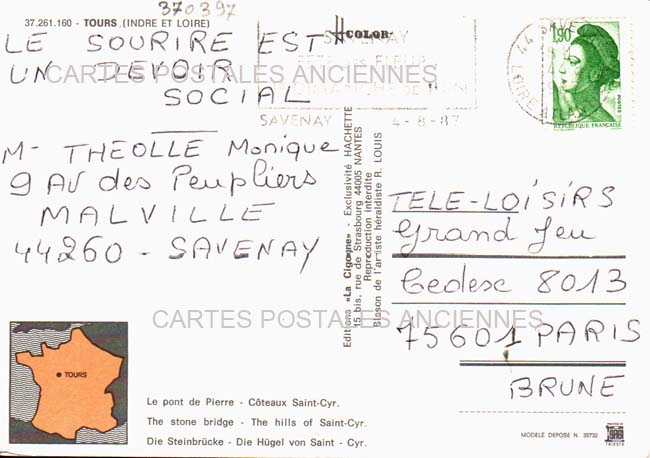 370397
37.261.160 - TOURS (INDRE ET LOIRE)
LE SOURIRE EST
UN DEVOIR
SOCIAL
CARTES POSTALES ANCIENNES
M- THEOLLE Monique
9 AV des Peupliers
MALVILLE
44260 - SAVENAY
COLOR
SAVENAY
SAVENAY 4-8-87
44 SAVENAY
LOIRE ATLANTIQUE
1,90
POSTES
REPUBLIQUE FRANCAISE
Editions «La Cigogne» - Exclusivité HACHETTE
15 bis, rue de Strasbourg 44005 NANTES
Reproduction interdite
Blason de l'artiste héraldiste R. LOUIS
TELE-LOISIRS
Grand Jeu
Cedesc 8013
75601 PARIS
BRUNE
CARTES POSTALES ANCIENNES
TOURS
Le pont de Pierre - Côteaux Saint-Cyr.
The stone bridge - The hills of Saint-Cyr.
Die Steinbrücke - Die Hügel von Saint - Cyr.
MODELE DEPOSE N. 35732
TRIESTE